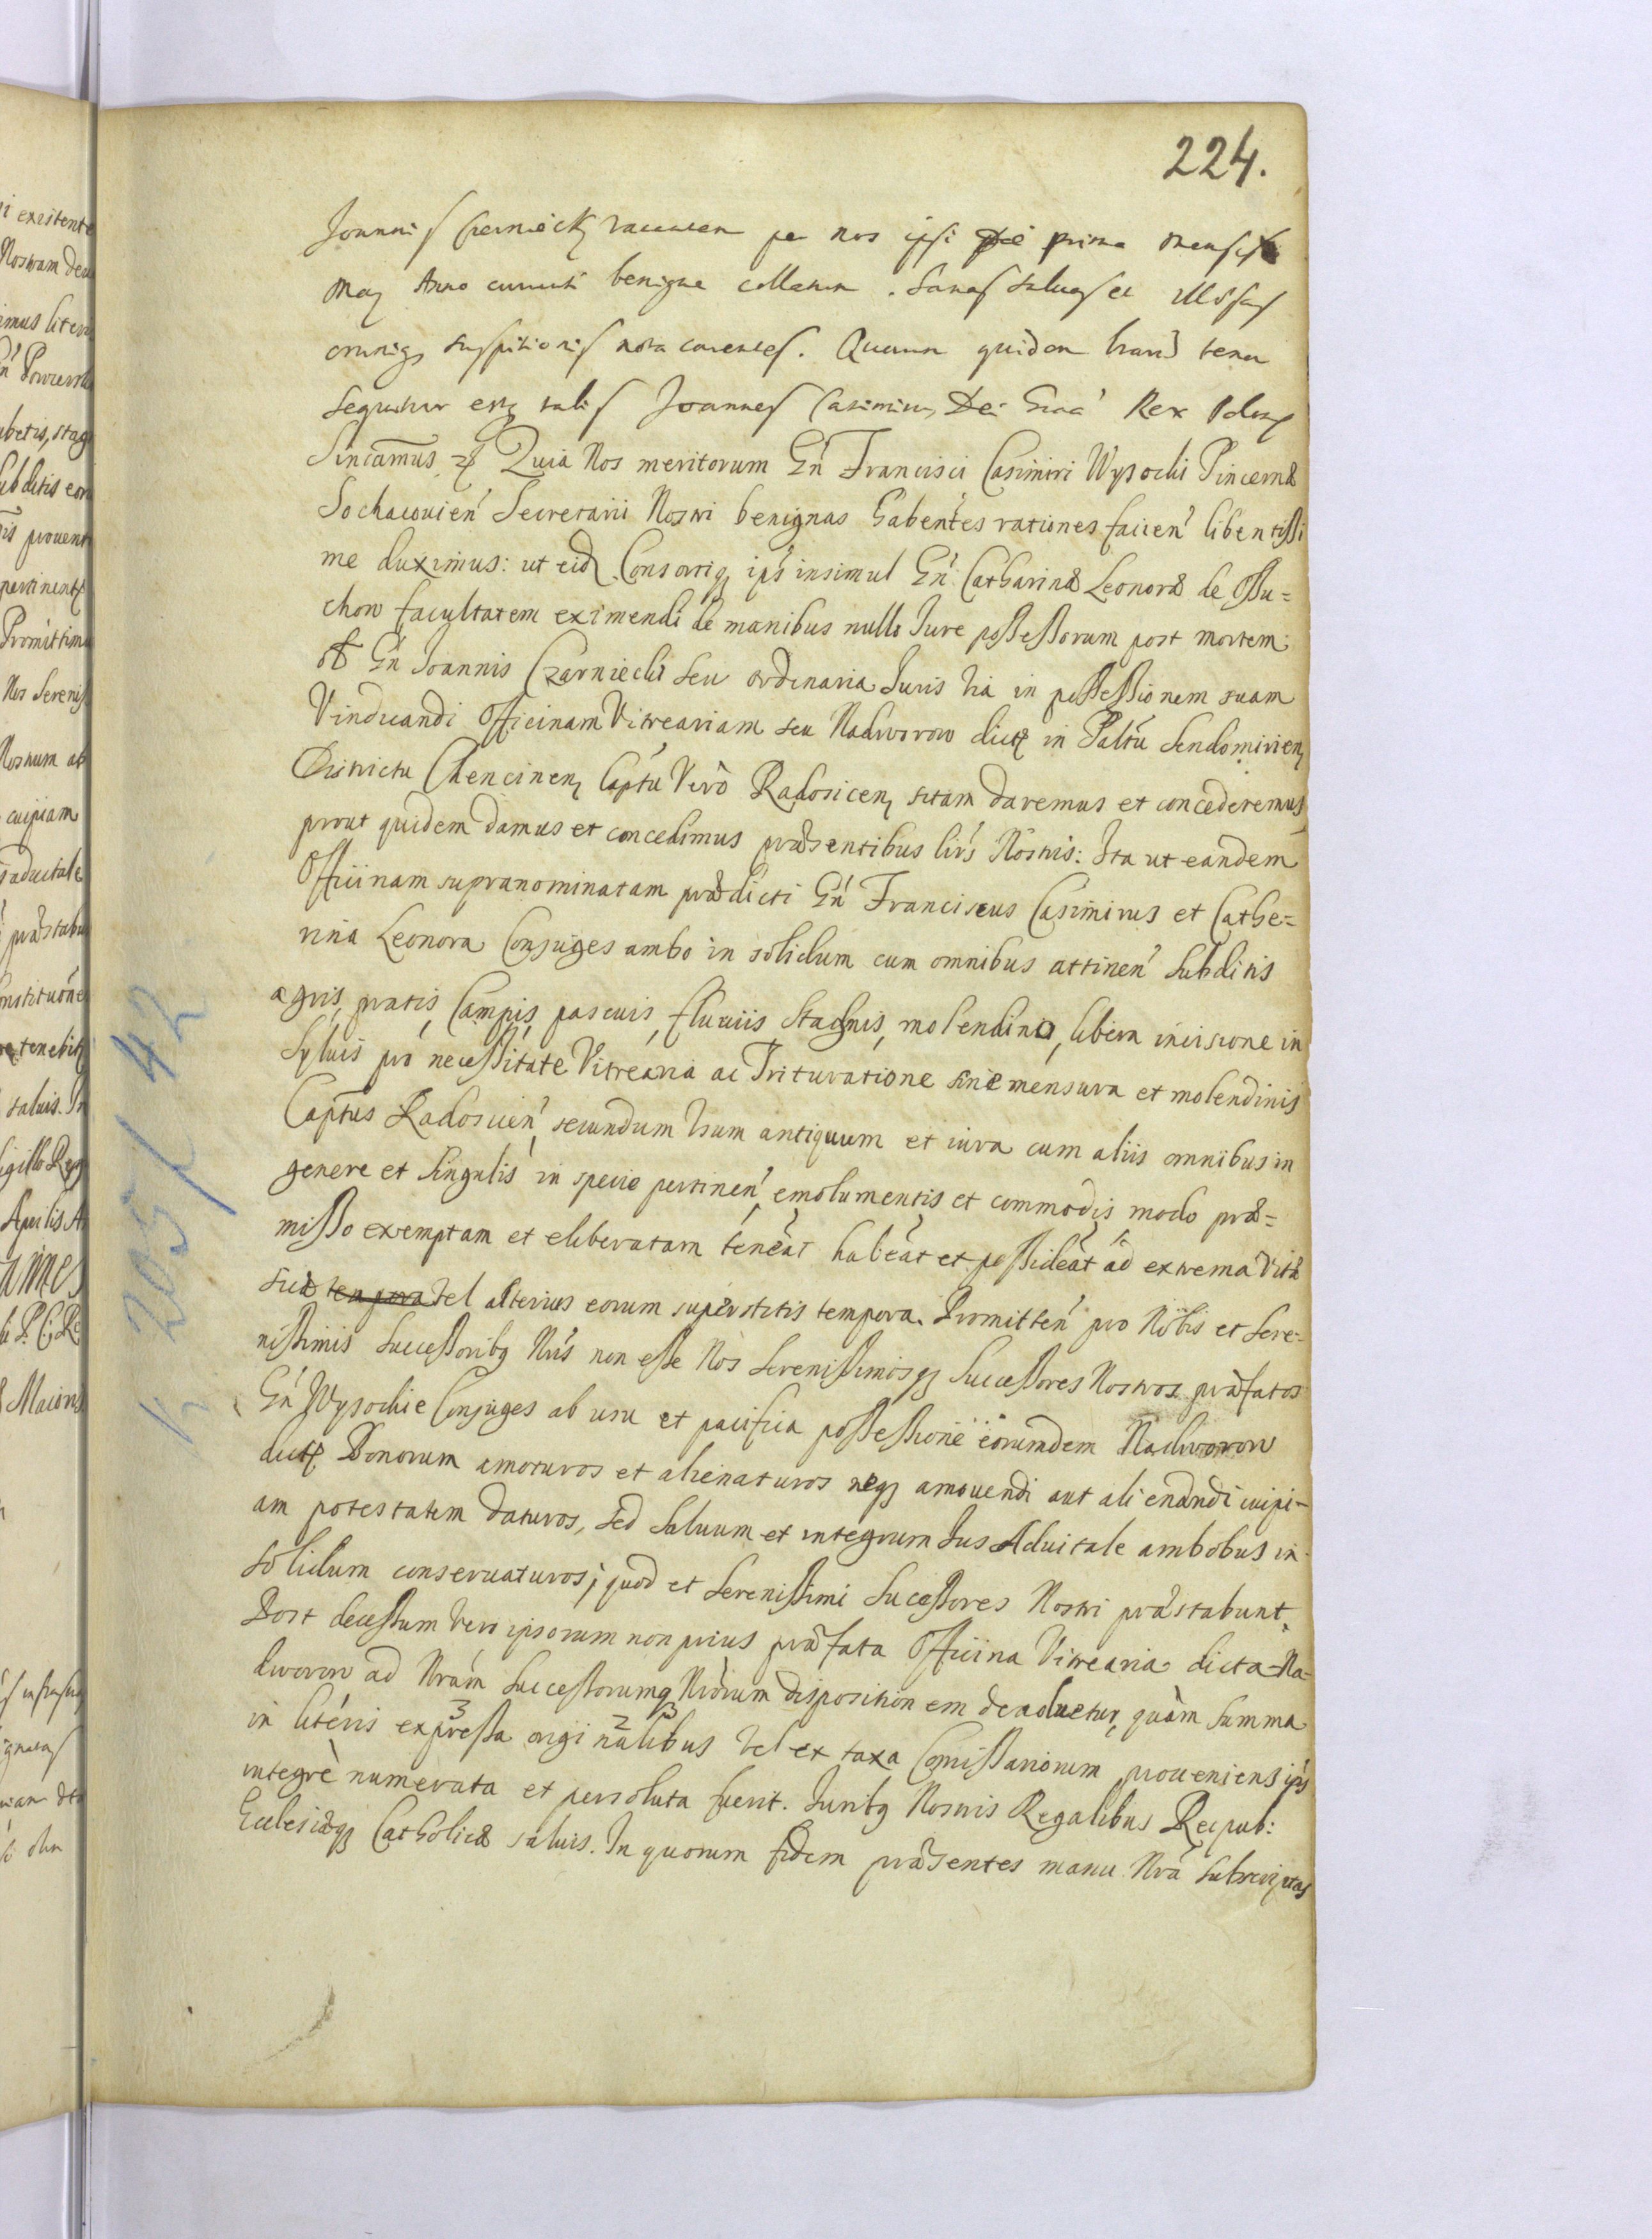 224.
Joannis Czerniecki vacantem per nos ipsi die prima mensis
Maij Anno currenti benigne collatam. Sanas saluas et illęsas
omniq suspitionis nota carentes. Quarum quidem harũ tenor
sequitur estq talis Joannes Casimirus Dei Graã Rex Polonię
Sincamus Quia Nos meritorum Gn̄ Francisci Casimiri Wysocki Pincernæ
Sochacouien̄ Secretarii Nostri benignas habentes rationes facien̄ libentissi
me duximus: ut eid Consortiq ips̄ insimul Gn̄ Catharinæ Leonoræ de Ossu=
chow facultatem eximendi de manibus nullo Jure possessorum post mortem
Gn̄ Joannis Czarniecki seu ordinaria Juris via in possessionem suam
Vindicandi Officinam Vitreariam seu Nadworow dictę in Paltũ Sendomirien
Districtu Chencinen Captũ Verò Radosicen sitam daremus et concederemus
prout quidem damus et concedimus præsentibus lirs̄ Nostris: Ita ut eandem
Officinam supranominatam prædicti Gn̄ Franciscus Casimirus et Cathe=
rina Leonora Conjuges ambo in solidum cum omnibus attinen̄ Subditis
agris, pratis, Campis, pascuis, fluuiis Stagnis, molendino, libera incisione in
Syluis pro necessitate Vitrearia ac Trituratione sine mensura et molendinis
Captus Radosicien̄, secundum Vsum antiquum et iura cum aliis omnibus in
genere et singulis in specie pertinen̄, emolumentis et commodis modo præ=
misso exemptam et eliberatam teneãt habeãt et possideãt ad extrema Vitæ
suæ tempora Vel alterius eorum superstitis tempora. Promitten̄ pro Nobis et Sere=
nissimis Successoribq Nrīs non esse Nos Serenissimosq Successores Nostros præfatos
Gn̄ Wysockie Conjuges ab usu et pacifica possessione eorumdem Nadworow
dictę Bonorum amoturos et alienaturos neq amouendi aut alienandi cuipi=
am potestatem daturos, sed saluum et integrum Jus Aduitale ambobus in
solidum conseruaturos; quod et Serenissimi Sucessores Nostri præstabunt.
Post decessum Vero ipsorum non prius præfata Officina Vitrearia dicta Na=
dworow ad Nrãm Successorumq Nrōrum dispositionem deuoluetur, quàm Summa
in literis expressa originalibus Vel ex taxa Comissariorum proueniens ips̄
integrè numerata et persoluta fuerit. Juribq Nostris Regalibus Reipub:
Ecclesiæq Catholicæ saluis. In quorum fidem præsentes manu Nrã subscriptas